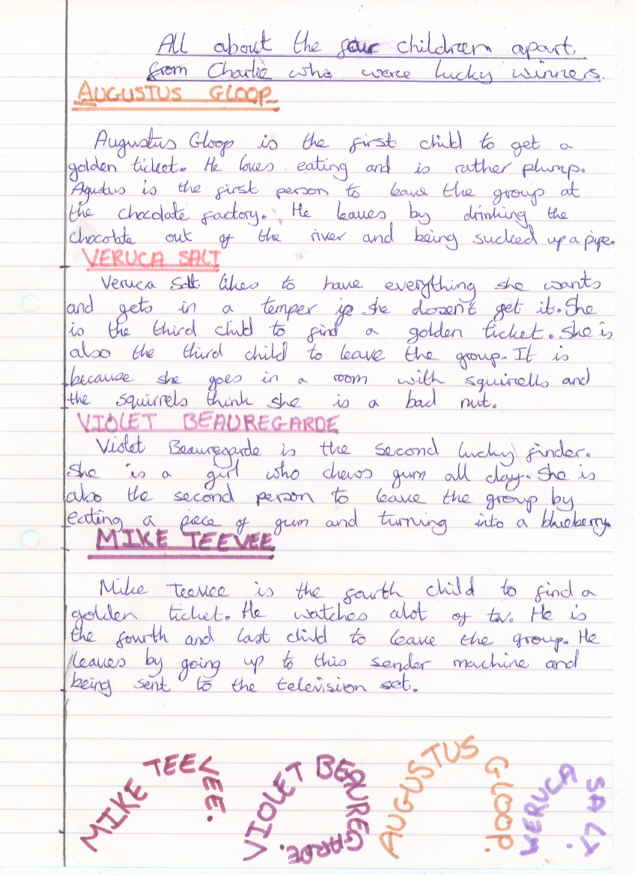 All about the four children apart
from Charlie who were lucky winners.
AUGUSTUS GLOOP
Augustus Gloop is the first child to get a
golden ticket. He loves eating and is rather plump.
Agutus is the first person to leave the group at
the chocolate factory. He leaves by drinking the
chocolate out of the river and being sucked up a pipe.
VERUCA SALT
Veruca Salt likes to have everything she wants
and gets in a temper if she dosen't get it. She
is the third child to find a golden ticket. She is
also the third child to leave the group. It is
because she goes in a room with squirells and
the squirrels think she is a bad nut.
VIOLET BEAUREGARDE
Violet Beauregarde is the second lucky finder.
She is a girl who chews gum all day. She is
also the second person to leave the group by
eating a piece of gum and turning into a blueberry.
MIKE TEEVEE
Mike Teevee is the fourth child to find a
golden ticket. He watches alot of tv. He is
the fourth and last child to leave the group. He
leaves by going up to this sender machine and
being sent to the television set.
MIKE TEEVEE.
VIOLET BEAUREGARDE.
AUGUSTUS GLOOP.
VERUCA SALT.